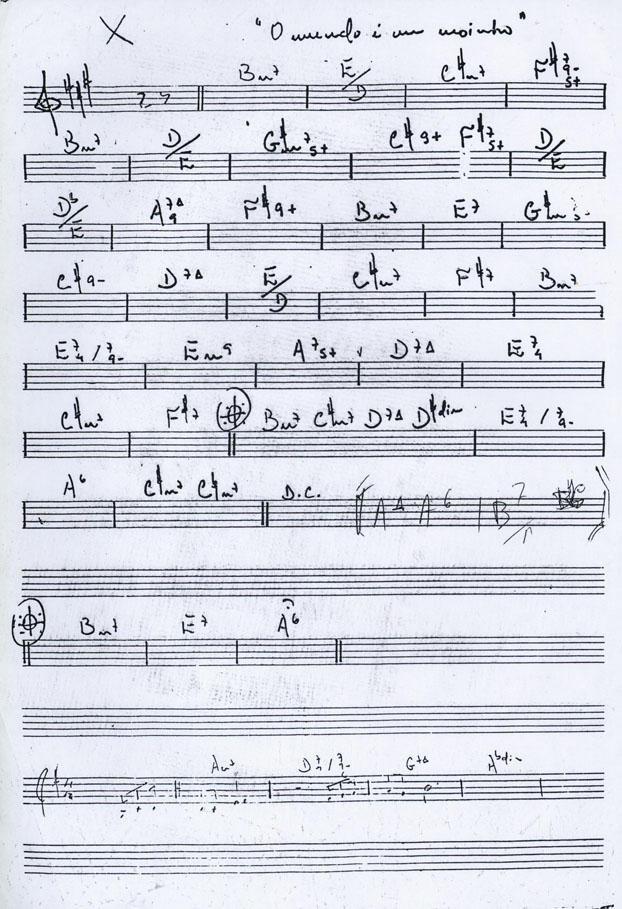 "O mundo é um moinho"
Bm7 E/D C#m7 F#7 9- 5+
Bm7 D/E G#m7 5+ C#9+ F#7 5+ D/E
E A7Δ 9 F#9+ Bm7 E7 G#m5-
C#9- D7Δ E/D C#m7 F#7 Bm7
E7 4 / 7 9- Em9 A7 5+ D7Δ E7 4
C#m7 F#7 Bm7 C#m7 D7Δ D#dim E7 4 / 7 9-
A6 C#m7 C#m7 D.C. AΔ A6 B7
Bm7 E7 A6
Am7 D7 4 / 7 9- G7Δ Abdim